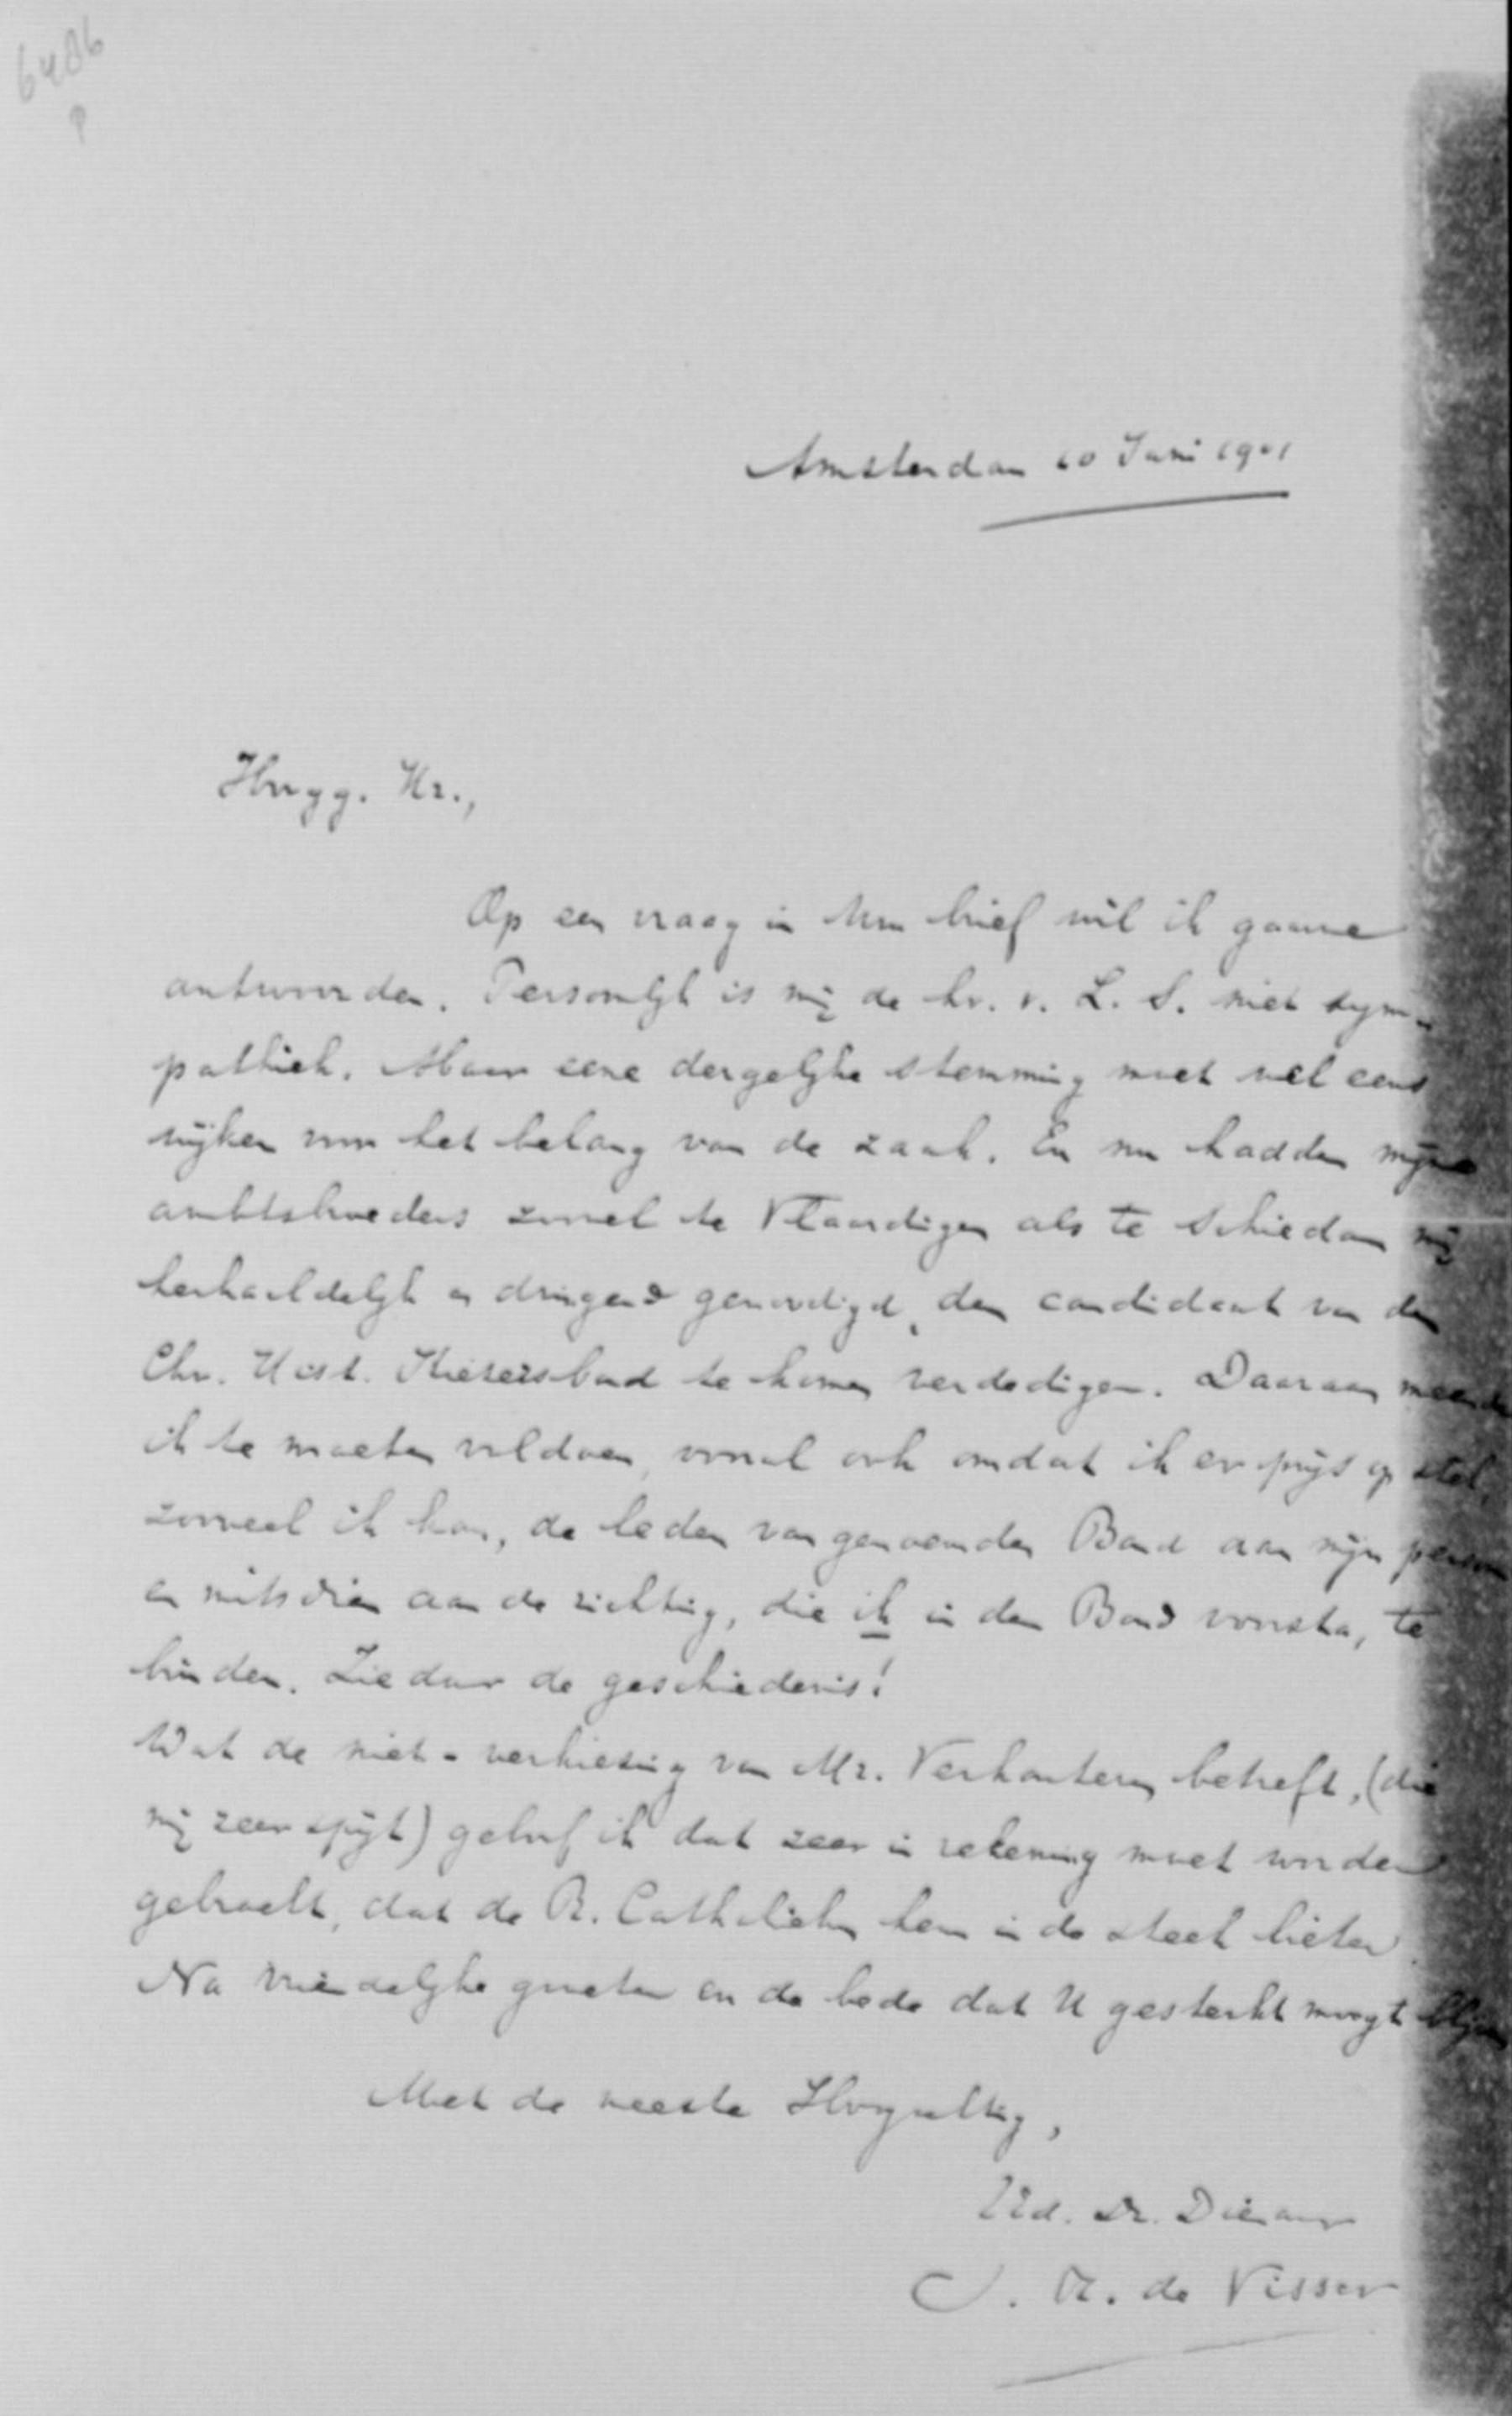 6486
P
Amsterdam 20 Juni 1901
Hoogg. Hr.,
Op een vraag in Uwen brief wil ik gaarne
antwoorden. Persoonlijk is mij de hr. v. L. S. niet sym-
pathiek. Maar eene dergelijke stemming moet wel eens
wijken voor het belang van de zaak. En nu hadden mijne
ambtsbroeders zoowel te Vlaardingen als te Schiedam mij
herhaaldelijk en dringend genoodigd, den candidaat van den
Chr. Hist. Kiezersbond te komen verdedigen. Daaraan meende
ik te moeten voldoen, vooral ook omdat ik er prijs op stel,
zooveel ik kan, de leden van genoemden Bond aan mijn persoon
en mitsdien aan de richting, die ik in den Bond voorsta, te
binden. Ziedaar de geschiedenis!
Wat de niet-verkiezing van Mr. Verkouteren betreft, (die
mij zeer spijt) geloof ik dat zeer in rekening moet worden
gebracht, dat de R. Catholieken hem in de steek lieten.
Na vriendelijke groeten en de bede dat U gesterkt moogt blijven
Met de meeste Hoogachting,
Uw. Dr. Dienaar
J. Th. de Visser